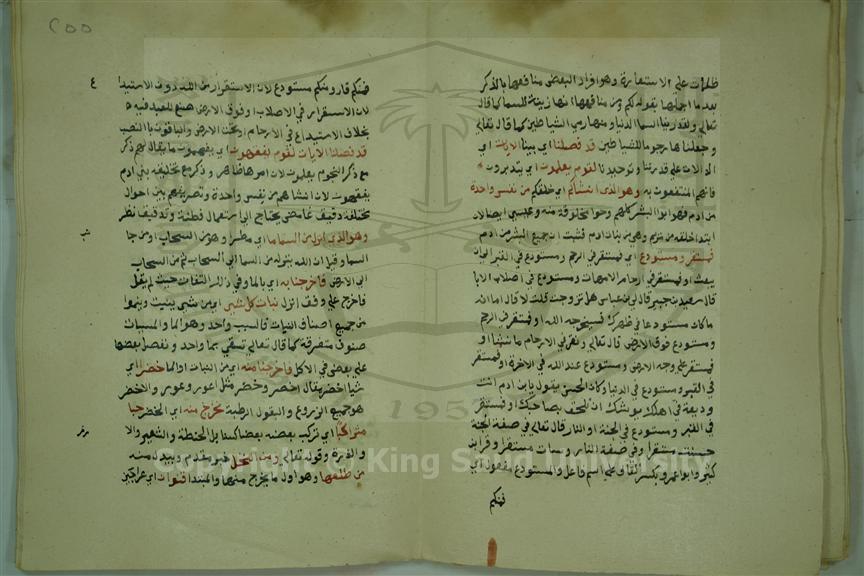 ظلمات على الاستعارة وهو افراد البعض منافعها بالذكر
بعدما اجملها بقوله لكم ومن منافعها انها زينة للسما كما قال
تعالى ولقد زينا السما الدنيا ومنها رمي الشياطين كما قال تعالى
وجعلناها رجوما للشياطين قد فصلنا اي بينا الايات اي
الدالات على قدرتنا وتوحيدنا لقوم يعلمون اي يتدبرون
فانهم المنتفعون به وهو الذي انشاكم اي خلقكم من نفس واحدة
من ادم فهو ابو البشر كلهم وحوا مخلوقة منه وعيسى ايضا لان
ابتدا خلقه من مريم وهي من بنات ادم فثبت ان جميع البشر من ادم
فمستقر ومستودع اي فمستقر في الرحم ومستودع في القبر الى ان
يبعث او فمستقر في ارحام الامهات ومستودع في اصلاب الابا
قال سعيد بن جبير قال لي ابن عباس هل تزوجت قلت لا قال اما انه
ما كان مستودعا في ظهرك فسيخرجه الله او فمستقر في الرحم
ومستودع فوق الارض قال تعالى ونقر في الارحام ما نشا او
فمستقر على وجه الارض ومستودع عند الله في الاخرة او فمستقر
في القبر ومستودع في الدنيا وكان الحسن يقول يا ابن ادم انت
وديعة في اهلك يوشك ان تلحق بصاحبك او فمستقر
في القبر ومستودع في الجنة او النار قال تعالى في صفة الجنة
حسنت مستقرا وفي صفة النار وسات مستقرا وقرا ابن
كثير وابو عمرو بكسر القاف على اسم فاعل والمستودع مفعول اي
فمنكم
٢٥٥
فمنكم قار ومنكم مستودع لان الاستقرار من الله دون الاستيدا
لان الاستقرار في الاصلاب او فوق الارض صنع للعبد فيه
بخلاف الاستيداع في الارحام او تحت الارض والباقون بالنصب
قد فصلنا الايات لقوم يفقهون اي يفهمون ما يقال لهم ذكر
مع ذكر النجوم يعلمون لان امرها ظاهر وذكر مع تخليقه بني ادم
يفقهون لان انشاهم من نفس واحدة وتصريفهم بين احوال
مختلفة دقيق غامض يحتاج الى استعمال فطنة وتدقيق نظر
وهو الذي انزل من السما ما اي مطر وهو من السحاب او من جا
السما وقيل ان الله ينزله من السما الى السحاب ثم من السحاب
الى الارض فاخرجنا به اي بالما وفي ذلك التفات حيث لم يقل
فاخرج على وفق انزل نبات كل شي اي من شي ينبت وينموا
من جميع اصناف النبات فالسبب واحد وهو الما والمسببات
صنوف متفرقة كما قال تعالى تسقى بما واحد ونفضل بعضها
على بعض في الاكل فاخرجنا منه اي من النبات او الما خضر اي
شيا اخضر يقال اخضر وخضر مثل اعور وعور والاخضر
هو جميع الزروع والبقول الرطبة نخرج منه اي الخضر حبا
متراكبا اي تركب بعضه بعضا كسنابل الحنطة والشعير والا
والذرة وقوله تعالى ومن النخل خبر مقدم ويبدل منه
من طلعها وهو اول ما يخرج منها والمبتدا قنوان اي عراجين
Copyright © King Saud University
1957